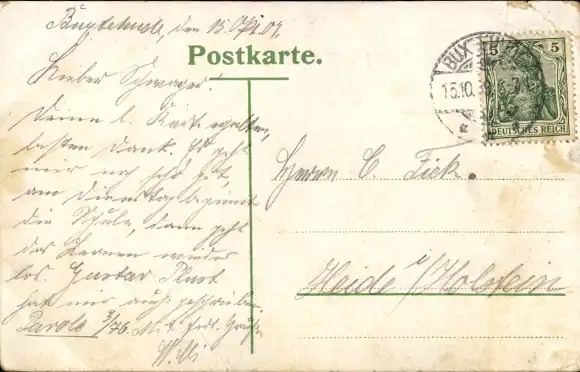 Buxtehude, den 15. Okt. 09.
Postkarte.
Lieber Schwager!
Deine l. Karte erhalten,
besten Dank. Es geht
mir noch sehr gut,
am Dienstag beginnt
die Schule, dann geht
das Lernen wieder
los. Gustav Plust
hat mir auch geschrieben.
Parole 3/76. Mit frdl. Gruß
Willi
BUX
15.10.09
5 5
DEUTSCHES REICH
Herrn C. Fick.
Heide i/Holstein